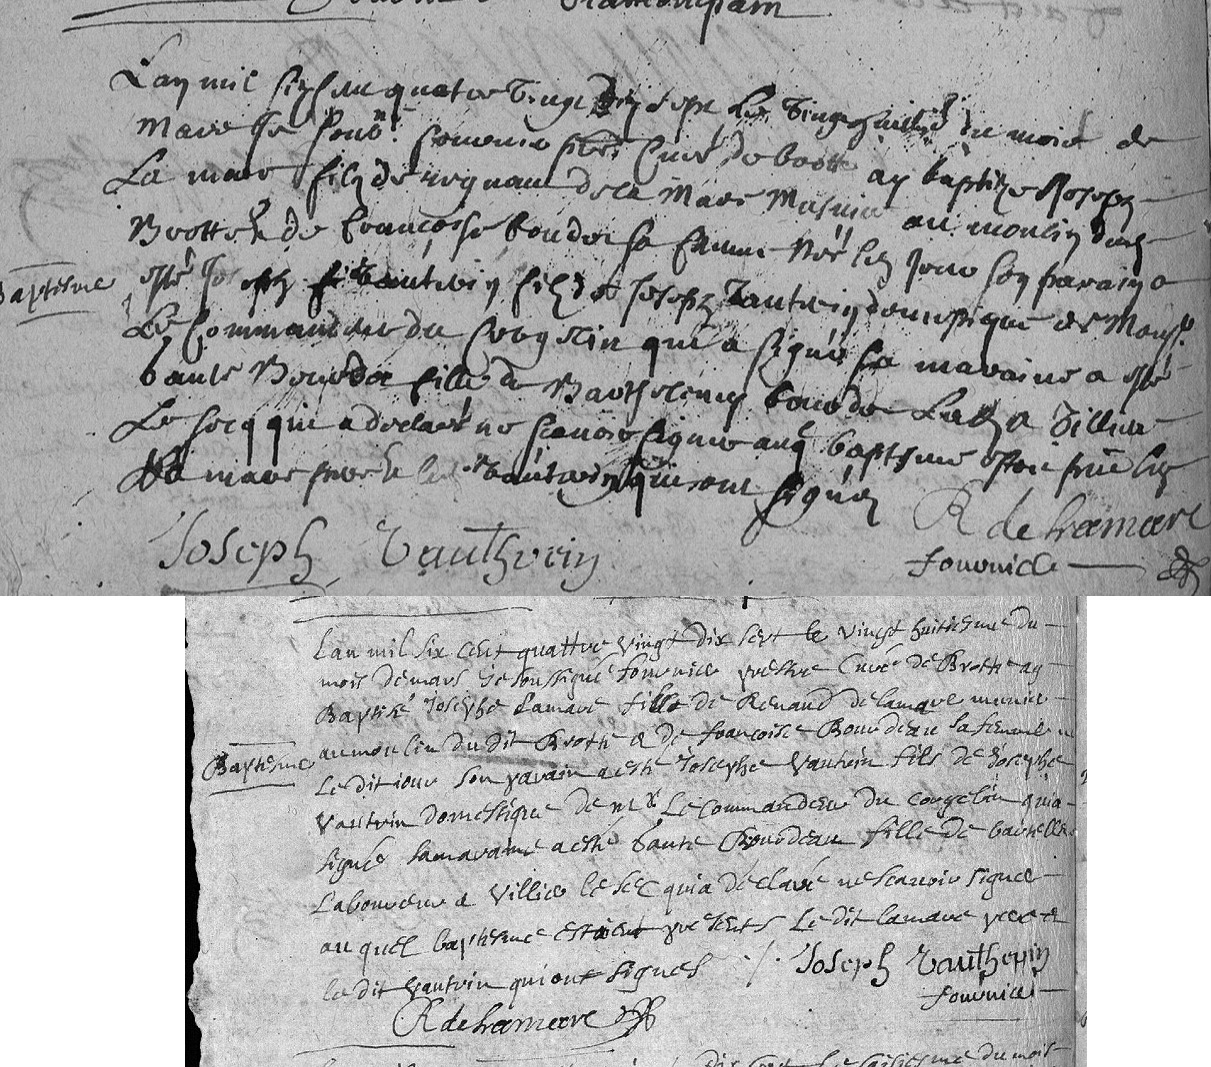 Lan mil six cen quatre vingt dix sept le vingt huitie du mois de
Mars Je sous.né fournier pbre Curé de brotte ay baptizé Joseph
La mare filz de regnau de la Mare Musnier au moulin dud
Brotte & de francoise bourdot sa femme Né led jour son parain a
Baptesme
esté Joseph Vautrin filz de Joseph Vautrin domestique de Mons.r
Le Commandeur du qui a signé sa maraine a esté
bourdot fille de Barthelemy bourdot Lab a Villier
Le secq qui a declaré ne scavoir signer auq baptesme estoi pnt led
La mare pere & led Vautrin qui ont signéz
R de Lamare
Joseph Vauthrin
fournier
Lan mil six cent quattre vingt dix sept le vingt huitiesme du
mois de mars Je soussigné fournier prestre Curé de Brotte ay
Baptisé Josephe Lamare fille de Renaud de lamare munier
au moulin du dit Brotte & de francoise Bourdeau sa femme
Baptesme
Le dit iour son parain a esté Josephe Vautrin fils de Josephe
Vautrin domestique de Mr Le Commandeur du qui a
signé sa maraine a esté Bourdeau fille de
Laboureur a Villier le sec qui a declaré ne scavoir signer
au quel baptesme estoient presents Le dit lamare pere &
le dit Vautrin qui ont signes Joseph Vauthrin
fournier
R de Lamare